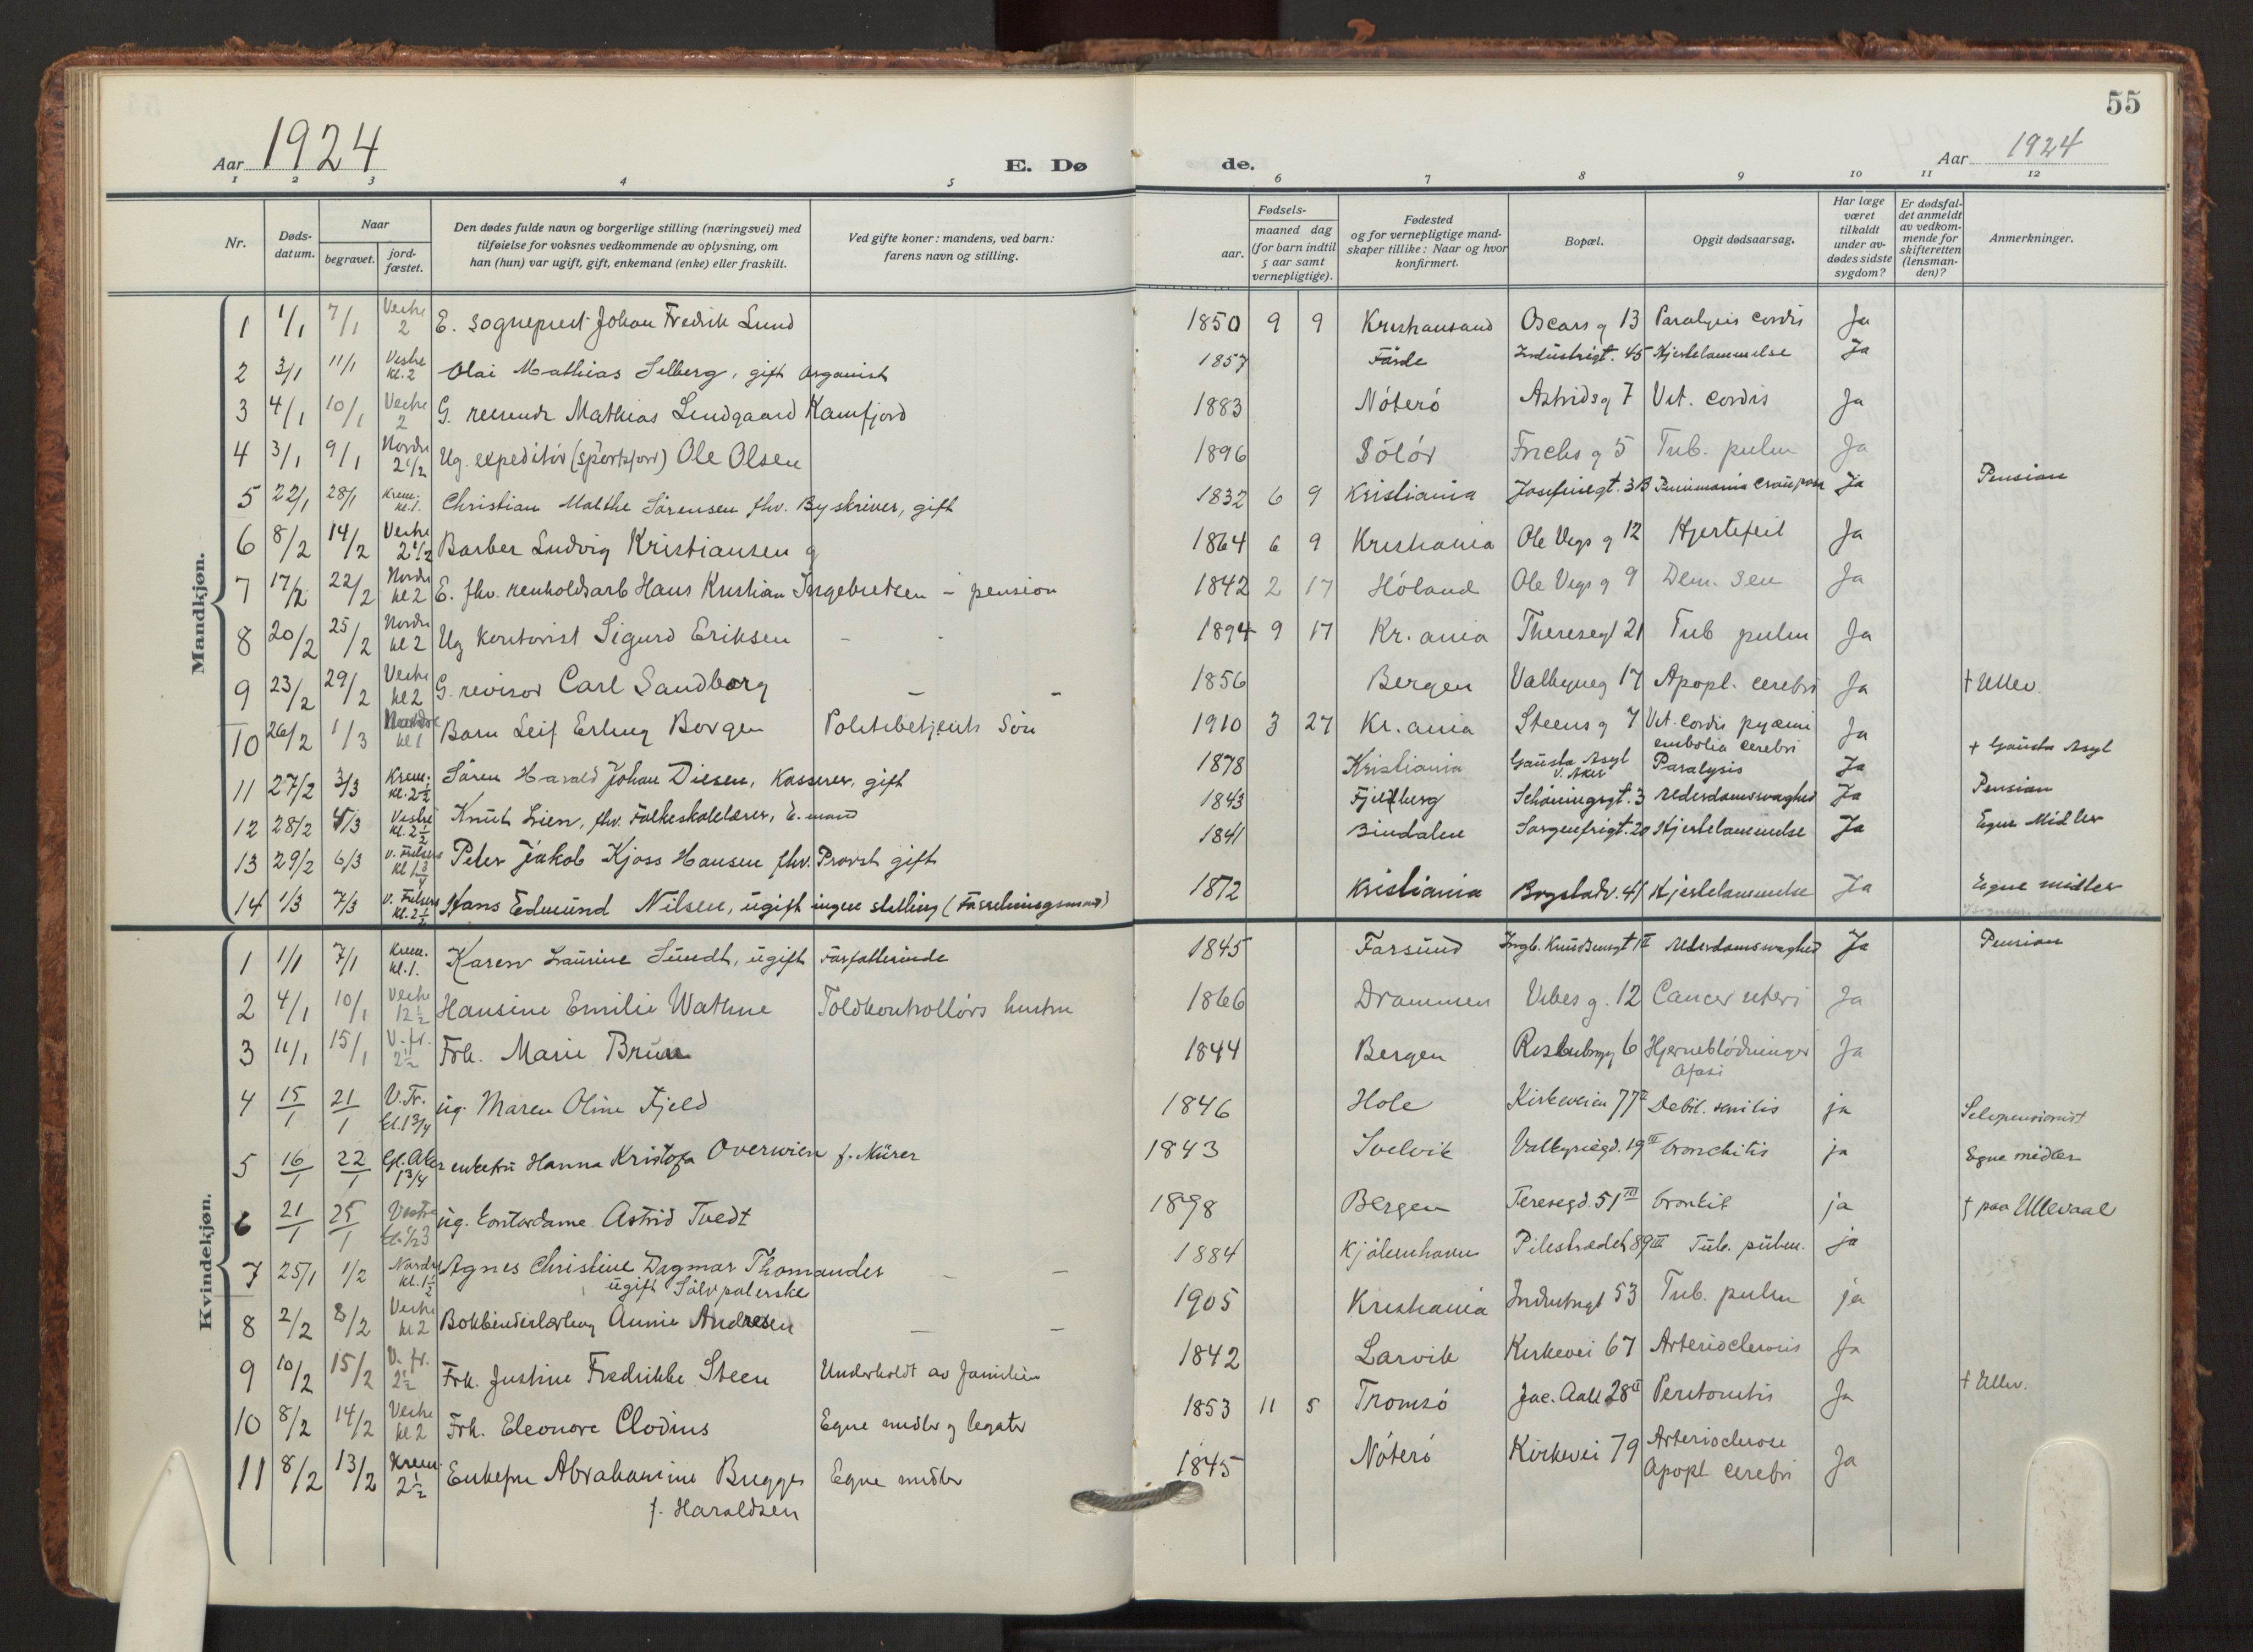 55
Aar 1924
E. Dø de.
Aar 1924
1 2 3 4 5 6 7 8 9 10 11 12
Nr.
Døds-
datum.
Naar
begravet.
jord-
fæstet.
Den dødes fulde navn og borgerlige stilling (næringsvei) med
tilføielse for voksnes vedkommende av oplysning, om
han (hun) var ugift, gift, enkemand (enke) eller fraskilt.
Ved gifte koner: mandens, ved barn:
farens navn og stilling.
Fødsels-
aar.
maaned dag
(for barn indtil
5 aar samt
vernepligtige).
Fødested
og for vernepligtige mand-
skaper tillike: Naar og hvor
konfirmert.
Bopæl.
Opgit dødsaarsag.
Har læge
været
tilkaldt
under av-
dødes sidste
sygdom?
Er dødsfal-
det anmeldt
av vedkom-
mende for
skifteretten
(lensman-
den)?
Anmerkninger.
Mandkjøn.
1 1/1 7/1 Vestre 2 E. sogneprest Johan Fredrik Lund 1850 9 9 Kristiansand Oscars g 13 Paralysis cordis Ja
2 3/1 11/1 Vestre kl. 2 Olai Mathias Selberg, gift organist 1857 Førde Industrigt. 45 Hjertelammelse Ja
3 4/1 10/1 Vestre 2 G. reisende Mathias Lindgaard Kamfjord 1883 Nøterø Astrids g 7 Vit. cordis Ja
4 3/1 9/1 Nordre 2 1/2 Ug. expeditør (sportsforr) Ole Olsen 1896 Solør Frichs g 5 Tub. pulm Ja
5 22/1 28/1 Krem. kl. 1. Christian Malthe Sørensen fhv. Byskriver, gift 1832 6 9 Kristiania Josefinegt. 3B Ja Pension
6 8/2 14/2 Vestre 2 1/2 Barber Ludvig Kristiansen g 1864 6 9 Kristiania Ole Vigs g 12 Hjertefeil Ja
7 17/2 22/2 Nordre kl 2 E. fhv. renholdsarb Hans Kristian Ingebretsen - pension 1842 2 17 Høland Ole Vigs g 9 Dem. sen Ja
8 20/2 25/2 Nordre kl 2 Ug kontorist Sigurd Eriksen - - 1894 9 17 Kr.ania Theresegt 21 Tub pulm Ja
9 23/2 29/2 Vestre kl 2 G. revisor Carl Sandborg - - 1856 Bergen Valkyrieg 17 Apopl. cerebri Ja † Ullev.
10 26/2 1/3 Nordre kl 1 Barn Leif Erling Borgen Politibetjents Søn 1910 3 27 Kr.ania Steens g 7 Vit. cordis pyæmi Ja
embolia cerebri
11 27/2 3/3 Krem. kl. 2 1/2 Søren Harald Johan Diesen, Kasserer, gift 1878 Kristiania Gausta Asyl V. Aker Paralysis Ja † Gausta Asyl
12 28/2 4/3 Vestre kl. 2 1/2 Knut Lien, fhv. Folkeskolelærer, E.mand 1843 Fjelberg Schøningsgt. 3 Alderdomssvaghed Ja Pension
13 29/2 6/3 V. Frelsers kl 1 3/4 Peter Jakob Kjoss Hansen fhv. Provst gift 1841 Bindalen Sorgenfrigt. 20 Hjertelammelse Ja Egne Midler
14 1/3 7/3 V. Frelsers kl. 2 1/2 Hans Edmund Nilsen, ugift ingen stilling 1872 Kristiania Bogstadv. 41 Hjertelammelse Ja Egne midler
Kvindekjøn.
1 1/1 7/1 Krem. kl. 1. Karen Laurine Sundt, ugift Forfatterinde 1845 Farsund Ingb. Knudsensgt II Alderdomssvaghed Ja Pension
2 4/1 10/1 Vestre 12 1/2 Hansine Emilie Wathne Toldkontrollørs hustru 1866 Drammen Vibes g. 12 Cancer uteri Ja
3 11/1 15/1 V. fr. 2 1/2 Frk. Marie Bruun 1844 Bergen 6 Hjerneblødninger Ja
Afasi
4 15/1 21/1 V. Fr. kl. 1 3/4 ug. Maren Oline Fjeld 1846 Hole Kirkeveien 77 II Debil. senilis ja Selvpensionist
5 16/1 22/1 Gl. Aker 1 3/4 enkefru Hanna Kristofa Overwien f. Mürer 1843 Svelvik Valkyriegd. 19 III bronchitis ja Egne midler
6 21/1 25/1 Vestre kl. 1/2 3 ug. kontordame Astrid Tvedt 1898 Bergen Teresegd. 51 III bronkit ja † paa Ullevaal
7 25/1 1/2 Nordre kl. 1 1/2 Agnes Christine Dagmar Thomander - - 1884 Kjøbenhavn Pilestrædet 89 III Tub. pulm. ja
ugift Sølvpolerske
8 2/2 8/2 Vestre kl 2 Bokbinderlærling Annie Andresen - - 1905 Kristiania Industrigt 53 Tub. pulm ja
9 10/2 15/2 V. fr. 2 1/2 Frk. Justine Fredrikke Steen Underholdt av familien 1842 Larvik Kirkevei 67 Arteriosclerosis Ja
10 8/2 14/2 Vestre kl 2 Frk. Eleonore Clodius Egne midler og legater 1853 11 5 Tromsø Jac. Aall 28 II Peritonitis Ja † Ullev.
11 8/2 13/2 Krem. 2 1/2 Enkefru Abrahamine Brugge Egne midler 1845 Nøterø Kirkevei 79 Arteriosclerose Ja
f. Haraldsen Apopl cerebri